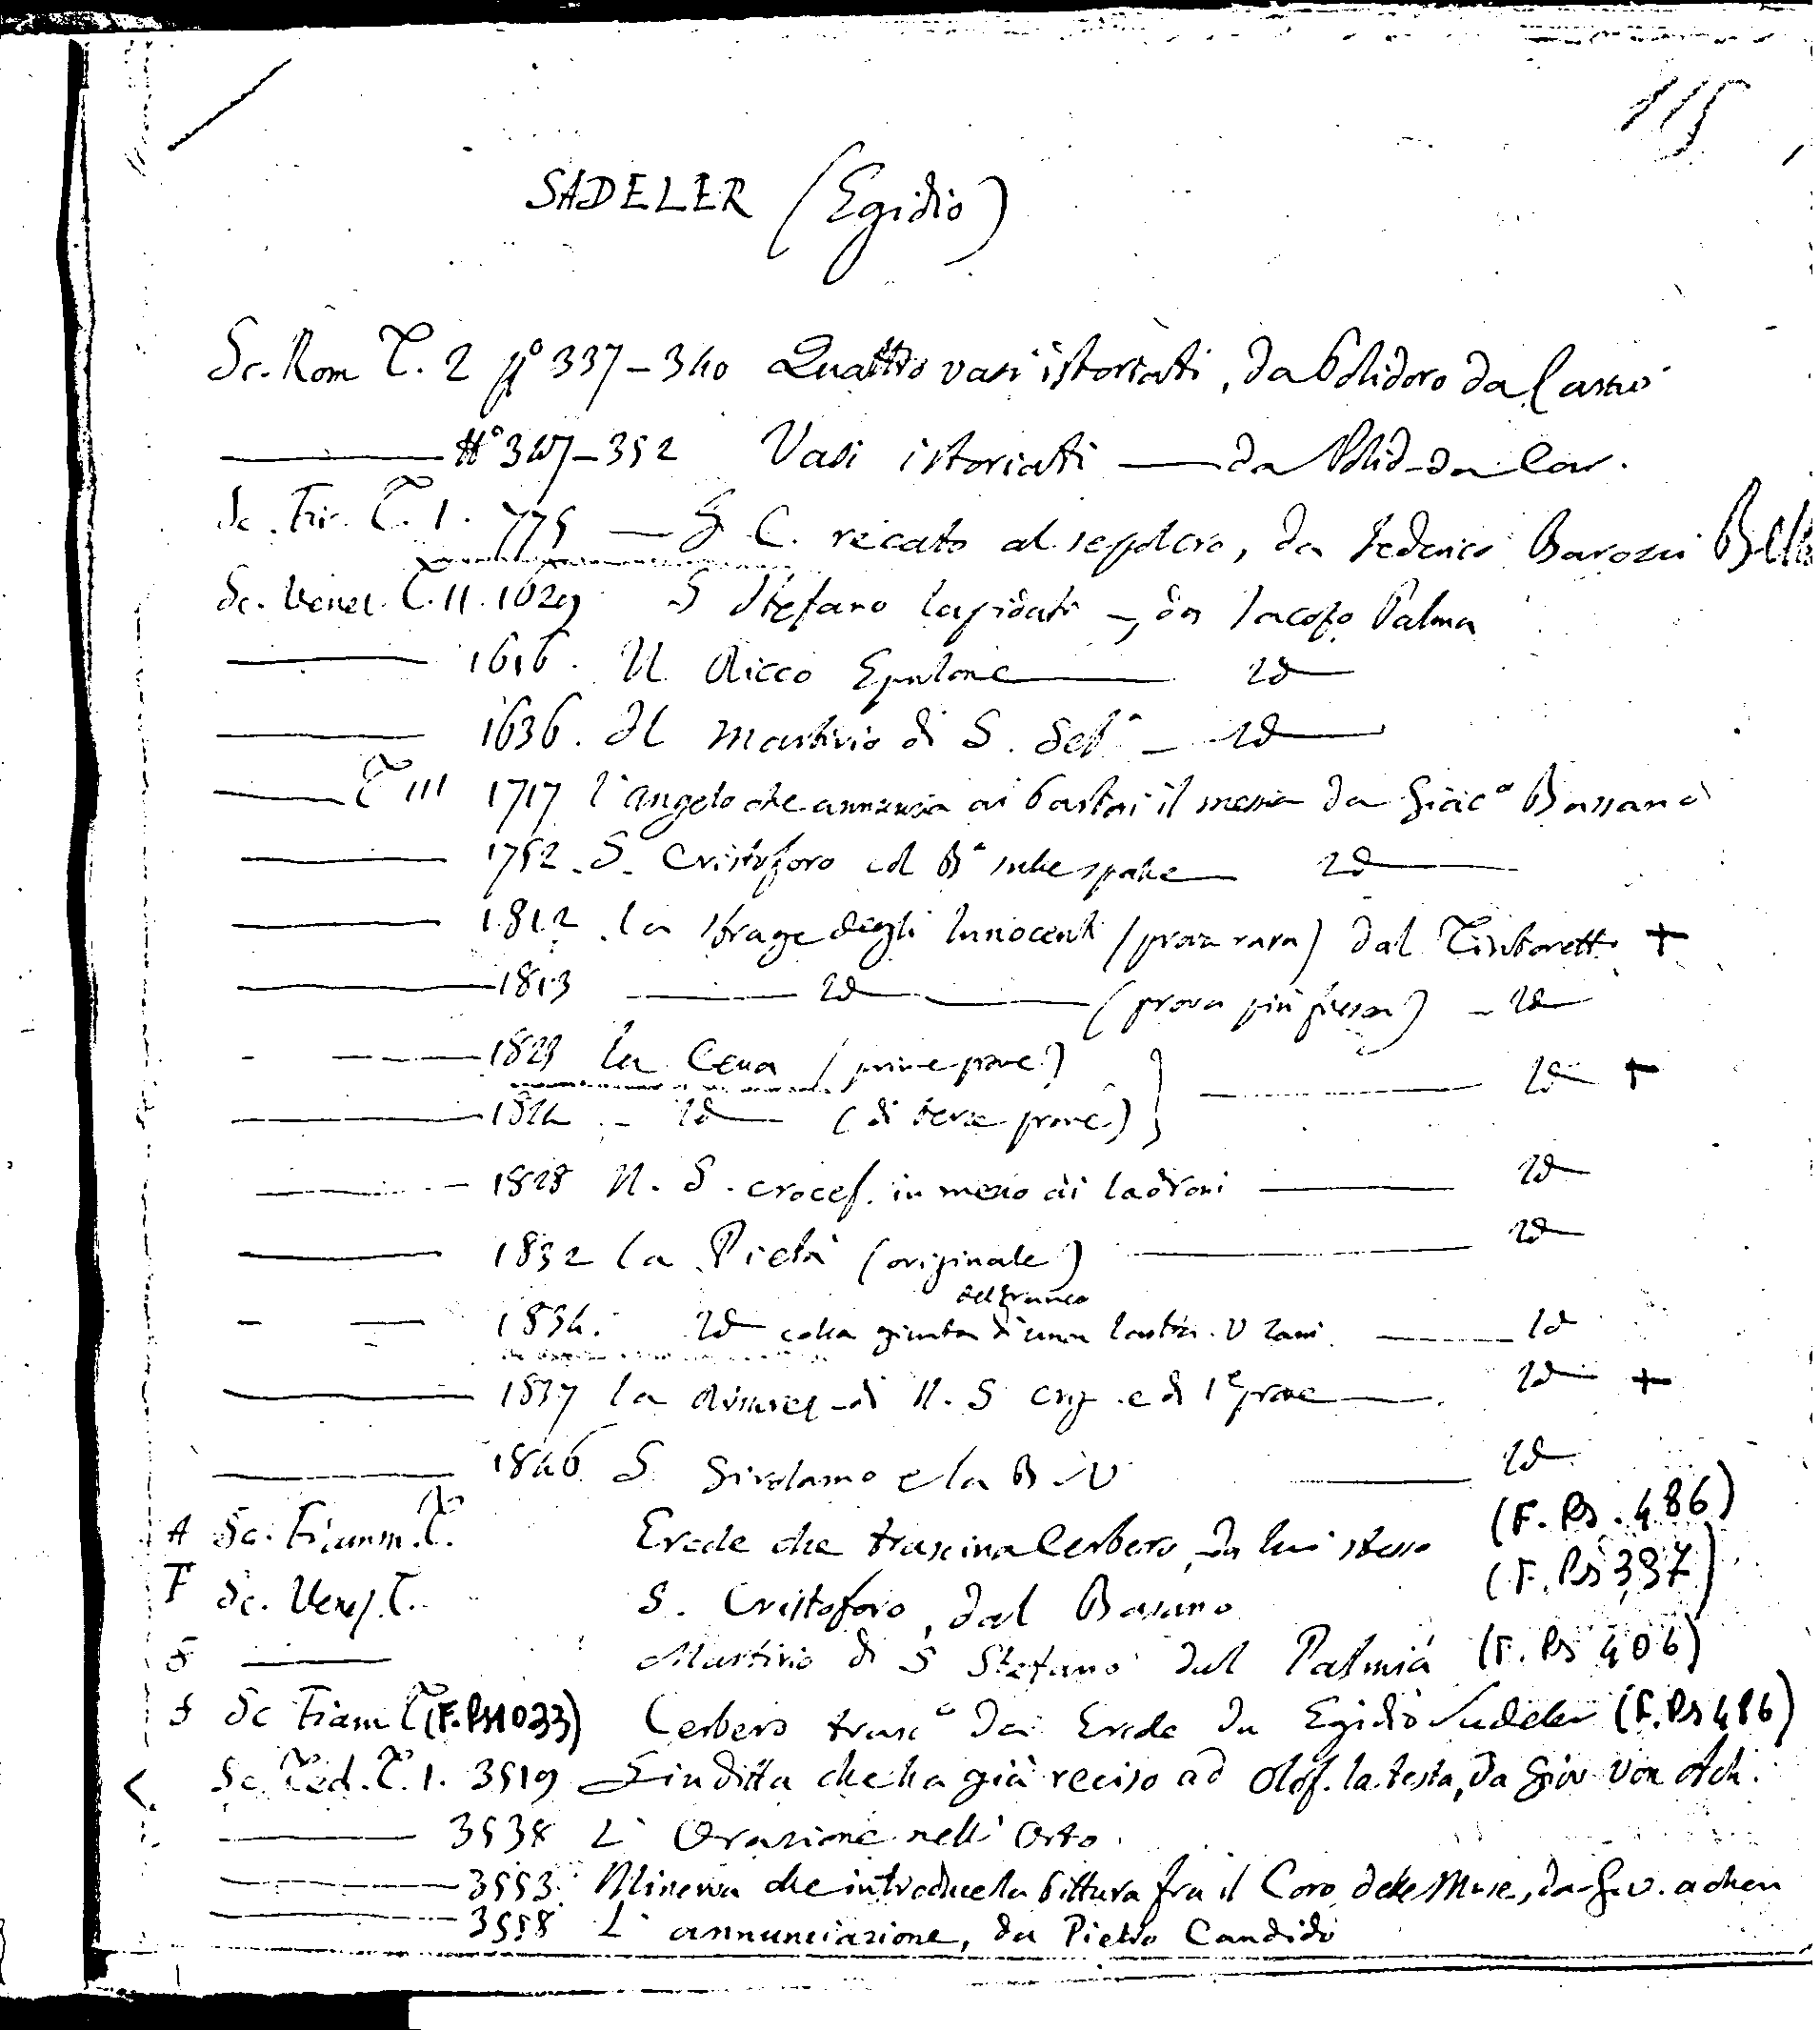 115
SADELER (Egidio)
Sc. Rom T. 2 N° 337-340 Quattro vasi istoriati, da Polidoro da Carav°
N° 347-352 Vasi istoriati — da Polid. da Car.
Sc. Fir. T. 1. 775 — G C. recato al sepolcro, da Federico Barozzi Bella
Sc. Venez. T. II. 1629 S Stefano lapidato — da Jacopo Palma
1616. Il Ricco Epulone — Id
1636. Il Martirio di S. Seb° — Id
T III 1717 l'angelo che annunzia ai Pastori il messia da Giac° Bassano
1752. S. Cristoforo col B° sulle spalle — Id
1812. la strage degli Innocenti (prova rara) dal Tintoretto +
1813 — Id — (prova più fresca) — Id
1823 la Cena (prime prove) } — Id +
1824 — Id — (di terze prove) }
1828 N. S. crocef. in mezzo ai ladroni — Id
1832 la Pietà (originale) — Id
del Franco
1834. Id colla giunta di una lastra. V Zani — Id
1837 la Risurez. di N. S cry. e di 1e prove — Id +
1846 S Girolamo e la B. V — Id
A Sc. Fiamm. T. Ercole che trascina Cerbero, da lui stesso (F. Ps. 486)
F Sc. Venez. T. S. Cristoforo, dal Bassano (F. Ps 397)
Martirio di S Stefano dal Palma (F. Ps 406)
Sc Fiam T (F. Ps 1033) Cerbero trasc° da Ercole da Egidio Sadeler (F. Ps 486)
Sc. Ted. T. 1. 3519 Giuditta che ha già reciso ad Olof. la testa, da Giov Von Ach.
3538 L'Orazione nell'Orto
3553 Minerva che introduce la Pittura fra il Coro delle Muse, da G. v. achen
3558 L'annunciazione, da Pietro Candido